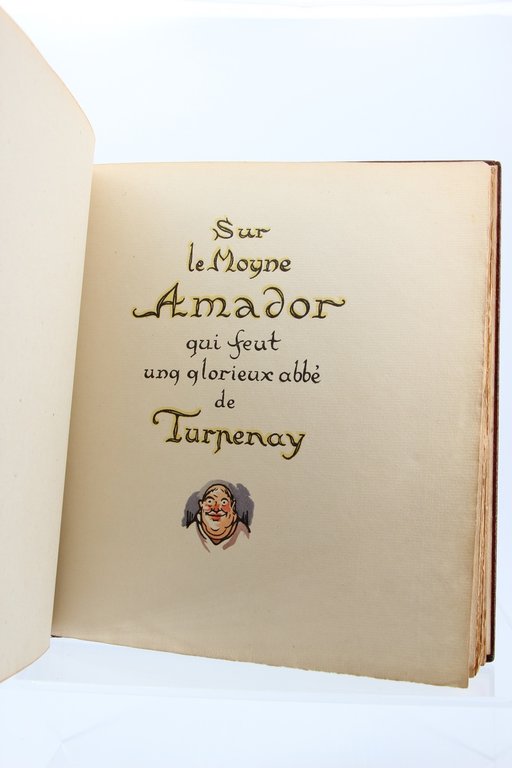 Sur
le Moyne
Amador
qui feut
ung glorieux abbé
de
Turpenay